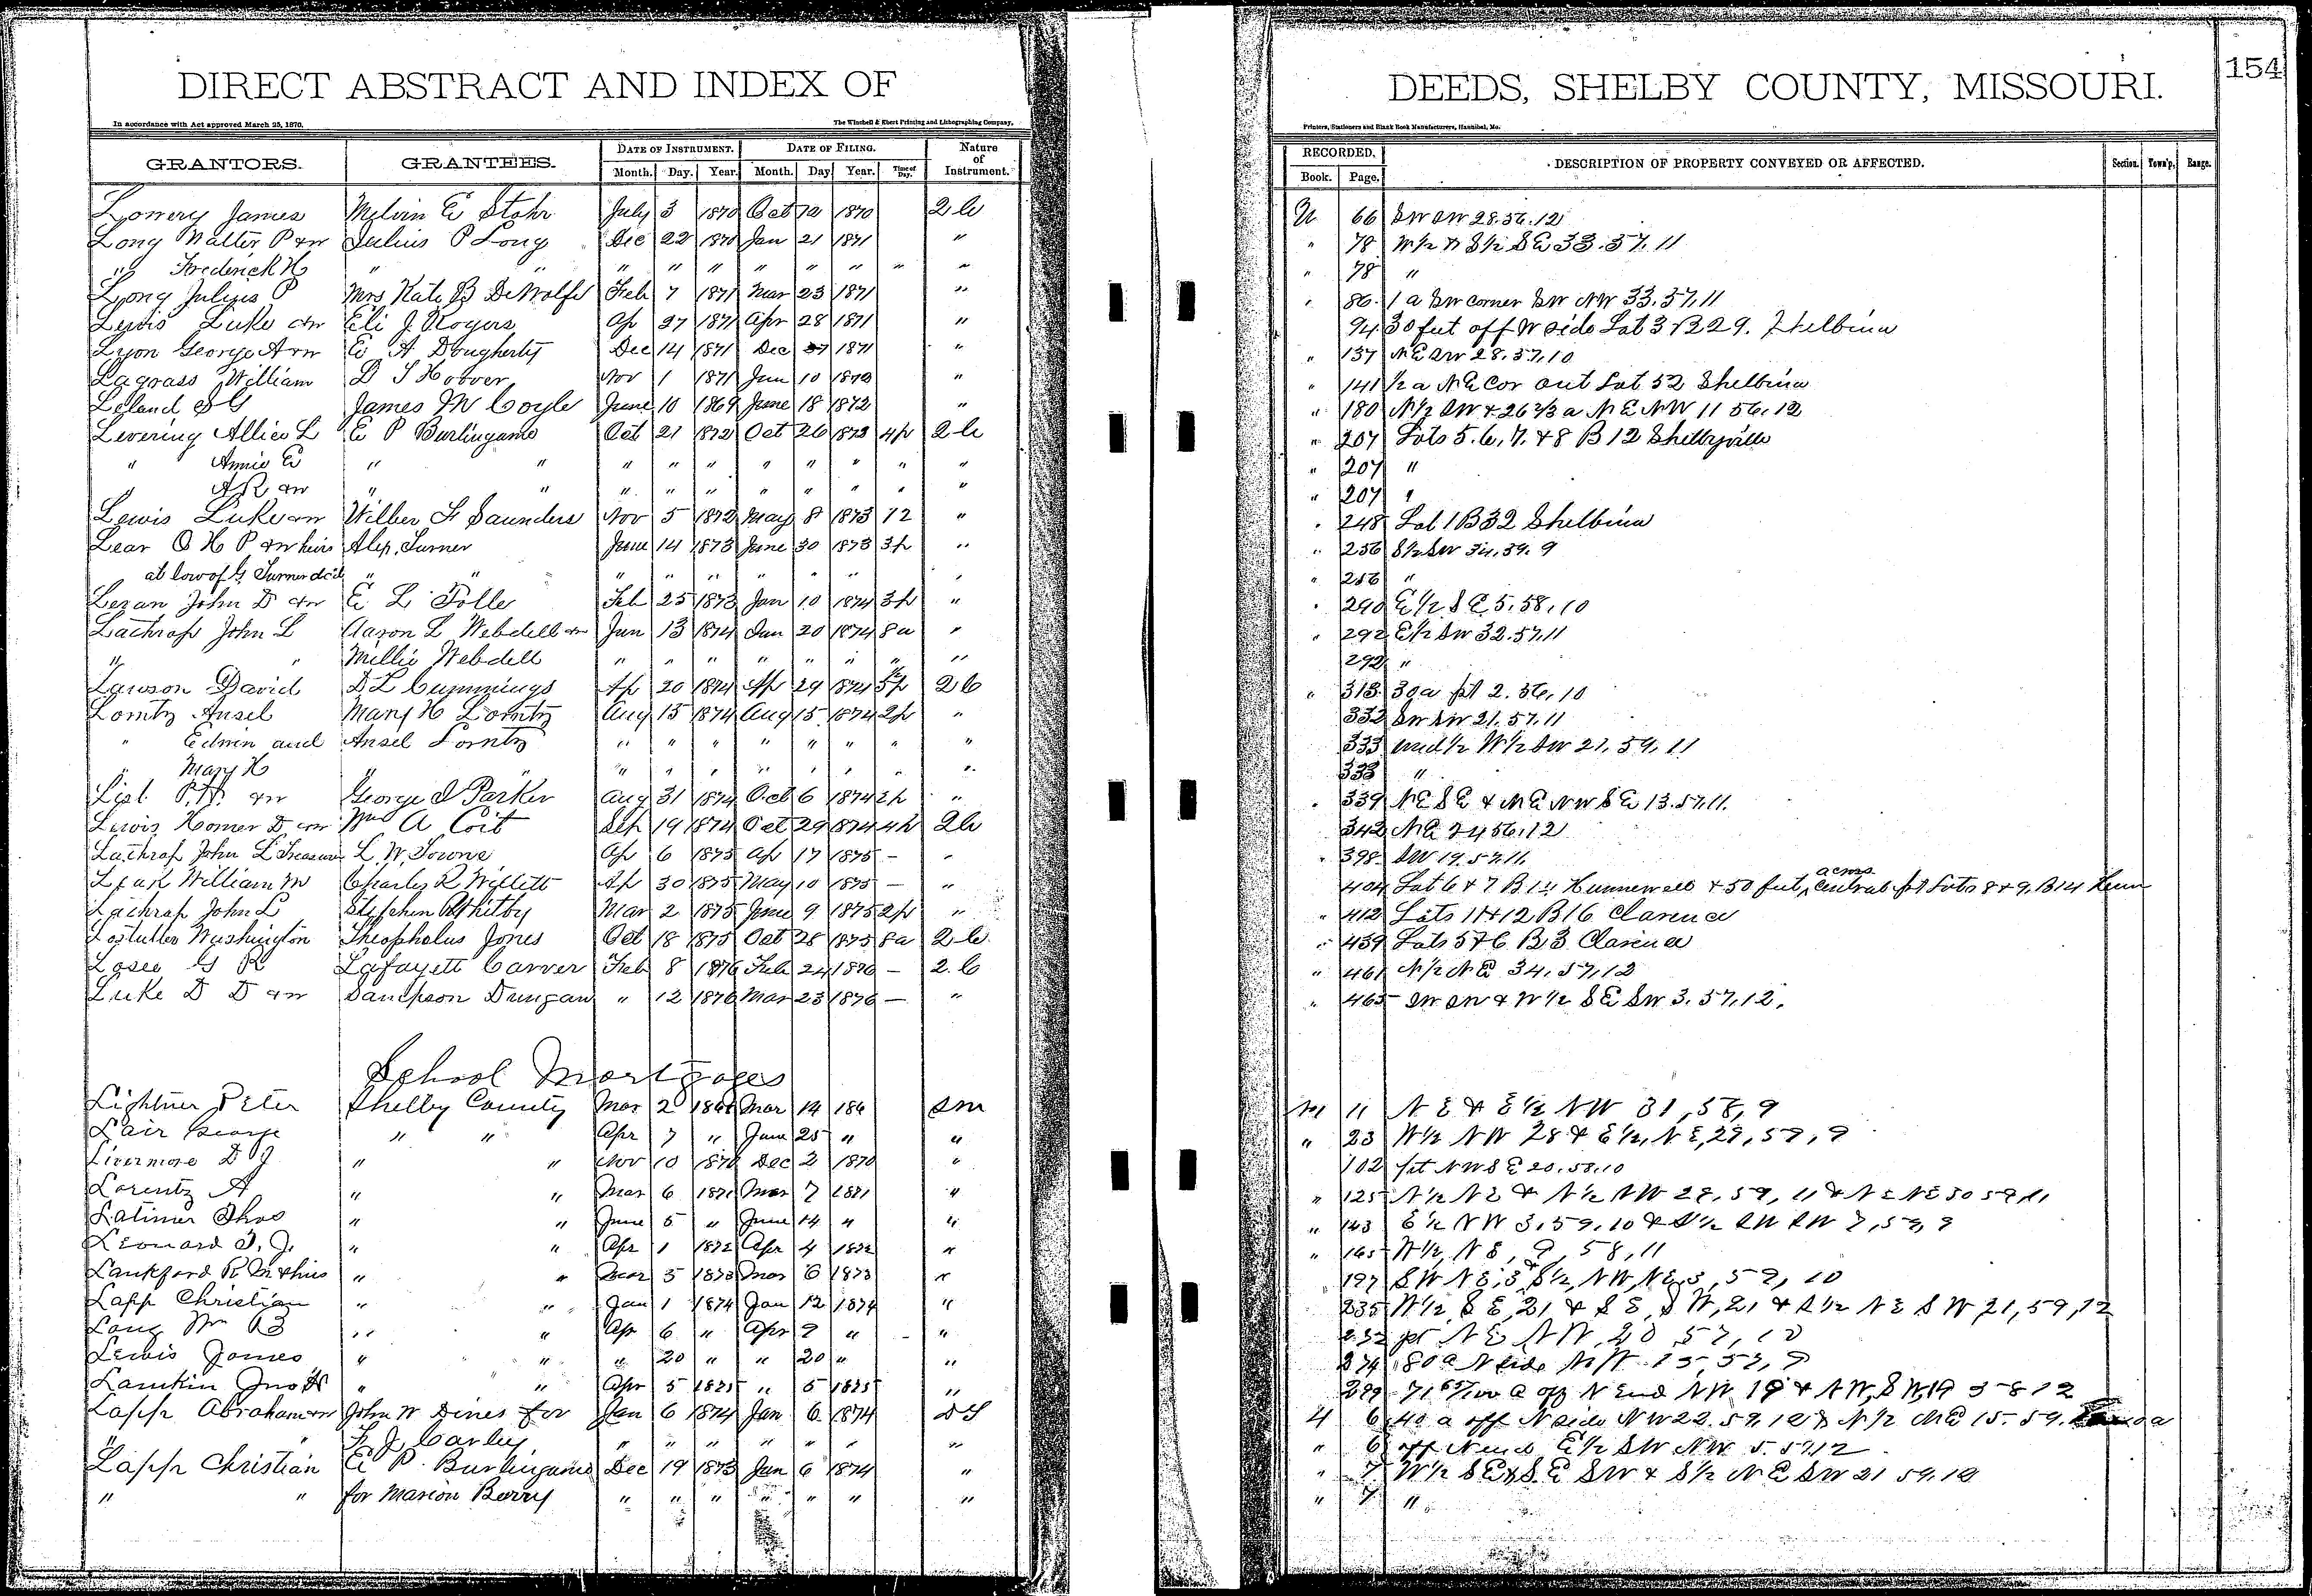 154
DIRECT ABSTRACT AND INDEX OF DEEDS, SHELBY COUNTY, MISSOURI.
In accordance with Act approved March 25, 1870. The Winchell & Ebert Printing and Lithographing Company, Printers, Stationers and Blank Book Manufacturers, Hannibal, Mo.
GRANTORS. GRANTEES. DATE OF INSTRUMENT. DATE OF FILING. Nature of Instrument. RECORDED. DESCRIPTION OF PROPERTY CONVEYED OR AFFECTED. Section. Town'p. Range.
Month. Day. Year. Month. Day Year. Time of Day. Book. Page.
Lowery James Melvin E Stohr July 3 1870 Oct 1870 66 SW SW 28.56.12
Long Walter P & w Julius P Long Dec 22 1870 Jan 21 1871 " " 78 W½ N S½ SE 33.57.11
" Frederick H " " " " " " " " " " " 78 "
Long Julius P Mrs Kate B DeWolfe Feb 7 1871 Mar 23 1871 " " 86 1 a SW corner SW NW 33.57.11
Lewis Luke & w Eli J Rogers Ap 27 1871 Apr 28 1871 " 94 30 feet off W side Lot 3 B 29. Shelbina
Lyon George A & w E A Dougherty Dec 14 1871 Dec 1871 " " 137 NE SW 28.57.10
Lagrass William D S Hoover Nov 1 1871 Jan 10 1872 " " 141 ½ a NE Cor out Lot 52 Shelbina
Leland S G James M Coyle June 10 1869 June 18 1872 " " 180 N½ SW & 26⅔ a NE NW 11 56.12
Levering Allice L E P Burlingame Oct 21 1872 Oct 26 1872 4p " 207 Lots 5.6.7.& 8 B 12 Shelbyville
" Annie E " " " " " " " " " " " 207 "
" A R & w " " " " " " " " " " " 207 "
Lewis Luke & w Wilber F Saunders Nov 5 1872 May 8 1873 12 " " 248 Lot 1 B 32 Shelbina
Lear O H P & w heirs Alex. Turner June 14 1873 June 30 1873 3p " " 256 S½ SW 34.39.9
at law of G Turner dcd " " " " " " " " " " 256 "
Leran John D & w E L Folle Feb 25 1873 Jan 10 1874 3p " " 290 E½ SE 5.58.10
Lathrop John L Aaron L Webdell & w Jan 13 1874 Jan 20 1874 8a " " 292 E½ SW 32.57.11
" " Millie Webdell " " " " " " " 292 "
Lawson David D L Cummings Ap 20 1874 Ap 29 1874 5p " 313 30a pt 2.56.10
Lorntz Ansel Mary H Lorntz Aug 15 1874 Aug 15 1874 2p " 332 SW SW 21.57.11
" Edwin and Ansel Lorntz " " " " " " " " 333 und½ W½ SW 21.59.11
" Mary H " " " " " " " " " " 333 "
List P.W. & w George D Parker Aug 31 1874 Oct 6 1874 2p " " 339 NE SE & NE NW SE 13.57.11.
Lewis Homer D & w Wm A Coit Sep 19 1874 Oct 29 1874 4p 342 NE 24 56.12
Lathrop John L Treasurer L. W. Towne Ap 6 1875 Ap 17 1875 — " " 398 SW 19.57.11
Leak William M Charles R Willett Ap 30 1875 May 10 1875 — " 404 Lot 6 & 7 B 14 Hunnewell & 50 feet acros central pt Lots 8 & 9. B 14 Hunn
Lathrop John L Stephen R Whitby Mar 2 1875 June 9 1875 2p " " 412 Lots 11 & 12 B 16 Clarence
Lostutter Washington Theopholus Jones Oct 18 1875 Oct 28 1875 8a " 439 Lots 5 & 6 B 3 Clarence
Losee G R Lafayett Carver Feb 8 1876 Feb 24 1876 — " 461 N½ NE 34.57.12
Luke D D & w Sampson Dungan " 12 1876 Mar 23 1876 — " " 465 SW SW & W½ SE SW 3.57.12.
School Mortgages
Lightner Peter Shelby County Mar 2 Mar 14 186 SM M 11 NE & E½ NW 31,58,9
Lair George " " Apr 7 " June 25 " " " 23 W½ NW 28 & E½, NE,29,59,9
Livermore D J " " Nov 10 1870 Dec 2 1870 " 102 pt NW SE 20.58.10
Lorentz A " " Mar 6 1871 Mar 7 1871 " " 125 N½ NE & N½ NW 29,59,11 & NE NE 30 59 11
Latimer Thos " " June 5 " June 14 " " " 143 E½ NW 3,59,10 & S½ SW SW 7,59,9
Leonard T. J. " " Apr 1 1872 Apr 4 1872 " " 165 W½, NE, 9, 58,11
Lankford R M & hins " " Mar 5 1873 Mar 6 1873 " 197 SW NE,3, S½, NW, NE,3,59,10
Lapp Christian " " Jan 1 1874 Jan 12 1874 " 235 W½ SE,21 & SE, SW,21 & S½ NE SW 21,59,12
Long Wm B " " Apr 6 " Apr 9 " " pt NE NW,20 57,10
Lewis James " " " 20 " " 20 " " 274 80 a N side N/W 15,57,9
Lamkin Jno H " " Apr 5 1875 " 5 1875 " 299 71 65/100 a off N End NW 19 & NW, SW,19 58 12
Lapp Abraham & w John W Dines for Jan 6 1874 Jan 6 1874 4 6 40 a off N side NW 22.59.12 & N½ NE 15.59.
" " F J Carley " " " " " " " " 6 off N end E½ SW NW 5.57.12
Lapp Christian E P Burlingame Dec 19 1873 Jan 6 1874 " " 7 W½ SE & SE SW & S½ NE SW 21 59.12
" " for Marion Berry " " " " " " " " 7 "